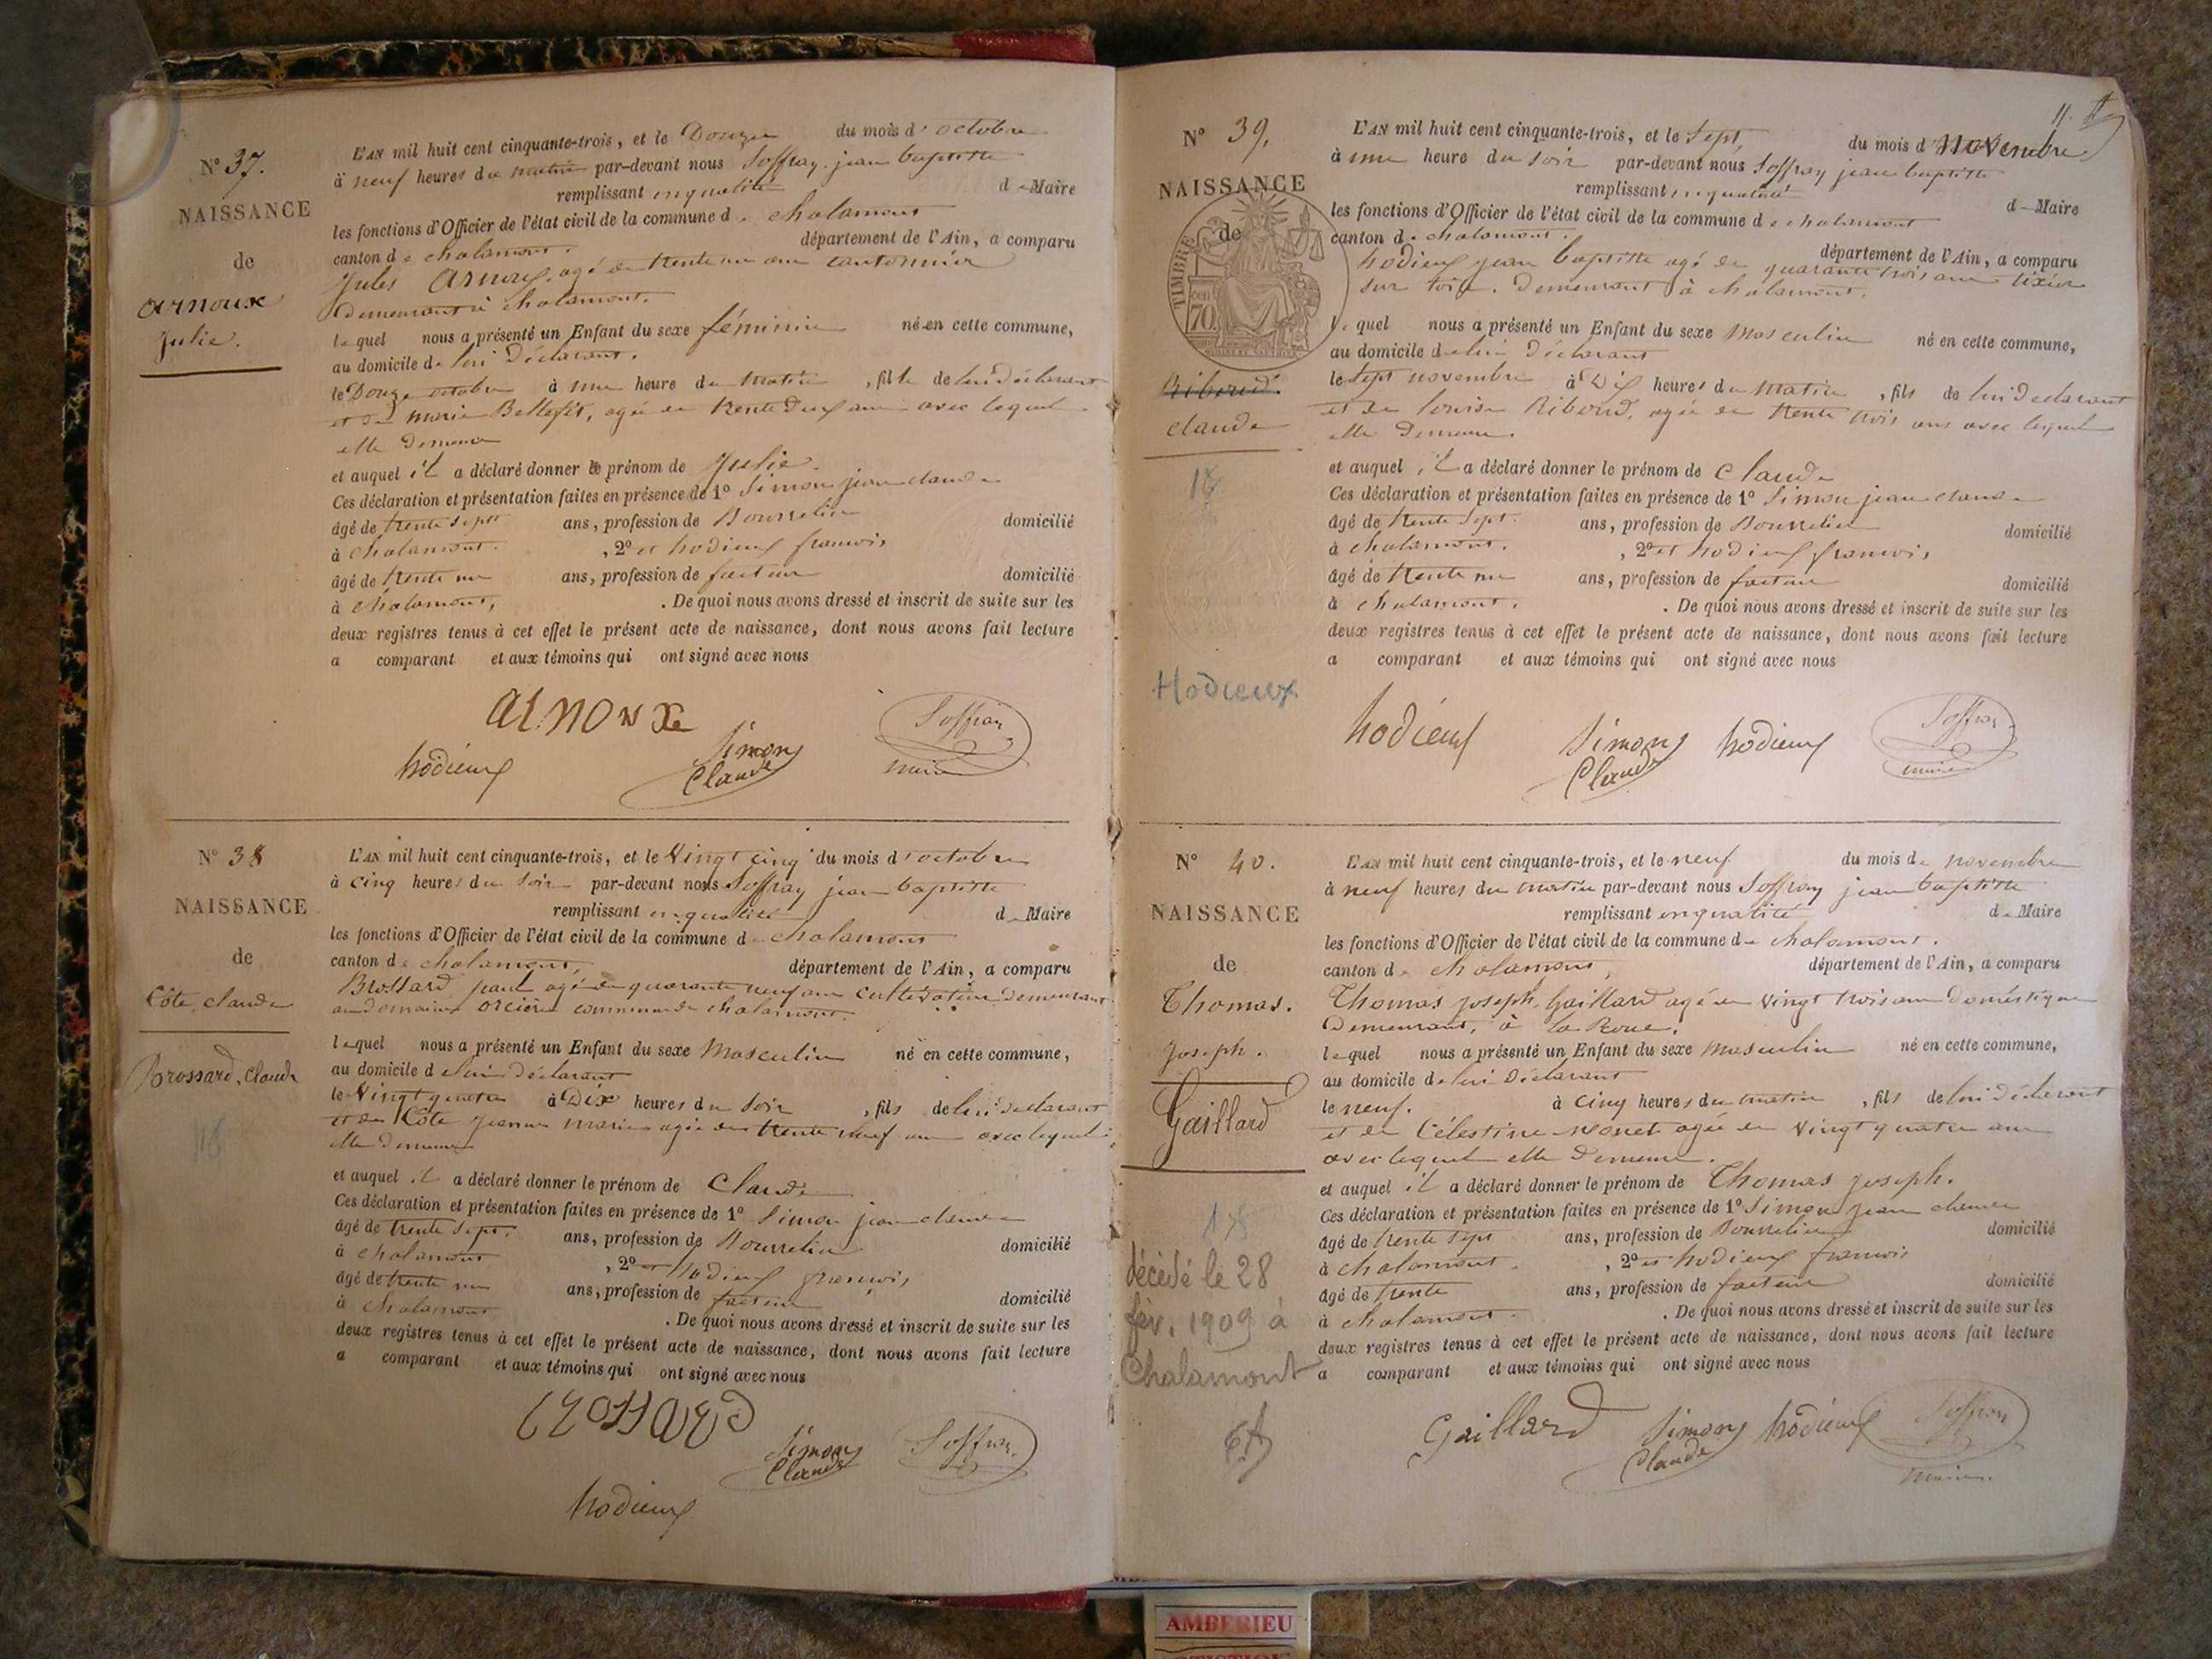 N° 37.
NAISSANCE
de
Arnoux
Julie.
L'AN mil huit cent cinquante-trois, et le Douze du mois d'octobre
à neuf heures du matin par-devant nous Soffray jean baptiste
remplissant en qualité de Maire
les fonctions d'Officier de l'état civil de la commune de chalamont
canton de chalamont. département de l'Ain, a comparu
Jules Arnoux, agé de trente un ans cantonnier
Demeurant à chalamont.
lequel nous a présenté un Enfant du sexe féminin né en cette commune,
au domicile de lui Déclarant.
le Douze octobre à une heure du matin, fille de lui déclarant
et de marie Bellefit, agée de trente deux ans avec lequel
elle demeure
et auquel il a déclaré donner le prénom de Julie.
Ces déclaration et présentation faites en présence de 1° Simon jean claude
âgé de trente sept ans, profession de Bourrelier domicilié
à chalamont. , 2° et hodieux francois
âgé de trente un ans, profession de facteur domicilié
à chalamont, . De quoi nous avons dressé et inscrit de suite sur les
deux registres tenus à cet effet le présent acte de naissance, dont nous avons fait lecture
a comparant et aux témoins qui ont signé avec nous
arnoux
hodieux
Simon
Claude
Soffray
maire
N° 38
NAISSANCE
de
Côte, claude
Brossard, Claude
L'AN mil huit cent cinquante-trois, et le Vingt cinq du mois d'octobre
à cinq heures du soir par-devant nous Soffray jean baptiste
remplissant en qualité de Maire
les fonctions d'Officier de l'état civil de la commune de chalamont
canton de chalamont, département de l'Ain, a comparu
Brossard paul agé de quarante neuf ans cultivateur demeurant
au domaine orcière commune de chalamont.
lequel nous a présenté un Enfant du sexe Masculin né en cette commune,
au domicile de lui déclarant
le Vingt quatre à Dix heures du soir, fils de lui declarant
et de Côte jeanne marie agée de trente neuf ans avec lequel
elle demeure
et auquel il a déclaré donner le prénom de Claude
Ces déclaration et présentation faites en présence de 1° Simon jean claude
âgé de trente sept. ans, profession de Bourrelier domicilié
à chalamont , 2° et hodieux françois
âgé de trente un ans, profession de facteur domicilié
à chalamont . De quoi nous avons dressé et inscrit de suite sur les
deux registres tenus à cet effet le présent acte de naissance, dont nous avons fait lecture
a comparant et aux témoins qui ont signé avec nous
Simon
Claude
Soffray
hodieux
11.
N° 39.
NAISSANCE
de
TIMBRE
70
Riboud
claude
18
Hodieux
L'AN mil huit cent cinquante-trois, et le sept du mois d novembre
à une heure du soir par-devant nous Soffray jean baptiste
remplissant en qualité de Maire
les fonctions d'Officier de l'état civil de la commune de chalamont
canton de chalamont. département de l'Ain, a comparu
hodieux jean baptiste agé de quarante trois ans tixier
sur toile. Demeurant à chalamont.
lequel nous a présenté un Enfant du sexe Masculin né en cette commune,
au domicile de lui Déclarant
le sept novembre à Dix heures du matin, fils de lui Declarant
et de louise Riboud, agée de trente trois ans avec lequel
elle Demeure.
et auquel il a déclaré donner le prénom de Claude
Ces déclaration et présentation faites en présence de 1° Simon jean claude
âgé de trente sept. ans, profession de Bourrelier domicilié
à chalamont. , 2° et hodieux francois,
âgé de trente un ans, profession de facteur domicilié
à chalamont. . De quoi nous avons dressé et inscrit de suite sur les
deux registres tenus à cet effet le présent acte de naissance, dont nous avons fait lecture
a comparant et aux témoins qui ont signé avec nous
hodieux
Simon
Claude
hodieux
Soffray
maire
N° 40.
NAISSANCE
de
Thomas.
Joseph.
Gaillard
décédé le 28
fév. 1909 à
Chalamont
L'AN mil huit cent cinquante-trois, et le neuf du mois de novembre
à neuf heures du matin par-devant nous Soffray jean baptiste
remplissant en qualité de Maire
les fonctions d'Officier de l'état civil de la commune de chalamont.
canton de chalamont, département de l'Ain, a comparu
Thomas joseph, Gaillard agé de vingt trois ans doméstique
Demeurant, à la Roue.
lequel nous a présenté un Enfant du sexe Masculin né en cette commune,
au domicile de lui Déclarant
le neuf. à cinq heures du matin, fils de lui déclarant
et de Célestine Monet agée de vingt quatre ans
avec lequel elle Demeure.
et auquel il a déclaré donner le prénom de Thomas joseph.
Ces déclaration et présentation faites en présence de 1° Simon jean claude
âgé de trente sept ans, profession de Bourrelier domicilié
à chalamont. , 2° et hodieux francois
âgé de trente ans, profession de facteur domicilié
à chalamont. . De quoi nous avons dressé et inscrit de suite sur les
deux registres tenus à cet effet le présent acte de naissance, dont nous avons fait lecture
a comparant et aux témoins qui ont signé avec nous
Gaillard
Simon
Claude
hodieux
Soffray
maire
AMBERIEU